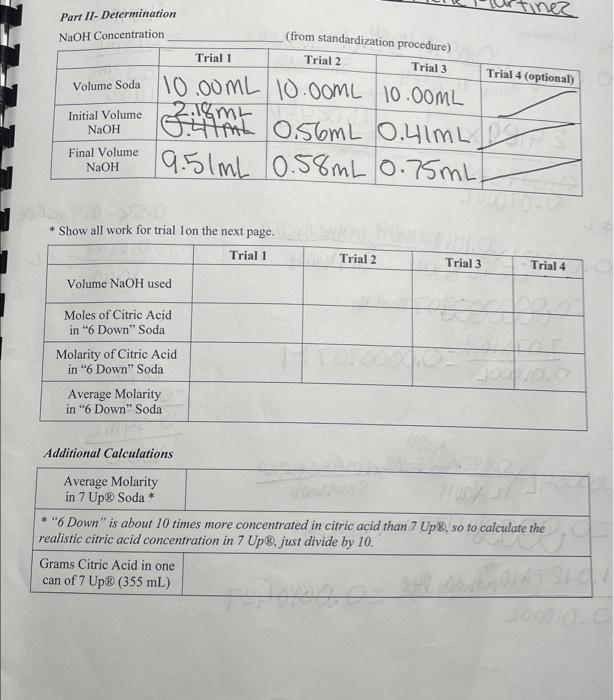 Martinez
Part II- Determination
NaOH Concentration (from standardization procedure)
Trial 1 Trial 2 Trial 3 Trial 4 (optional)
Volume Soda 10.00mL 10.00mL 10.00mL
Initial Volume NaOH 2.18mL 0.41mL 0.56mL 0.41mL
Final Volume NaOH 9.51mL 0.58mL 0.75mL
* Show all work for trial 1on the next page.
Trial 1 Trial 2 Trial 3 Trial 4
Volume NaOH used
Moles of Citric Acid
in “6 Down” Soda
Molarity of Citric Acid
in “6 Down” Soda
Average Molarity
in “6 Down” Soda
Additional Calculations
Average Molarity
in 7 Up® Soda *
* “6 Down” is about 10 times more concentrated in citric acid than 7 Up®, so to calculate the
realistic citric acid concentration in 7 Up®, just divide by 10.
Grams Citric Acid in one
can of 7 Up® (355 mL)